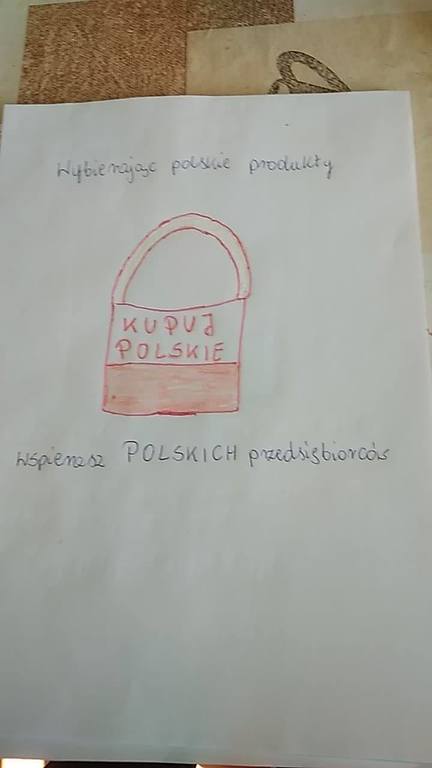 Wybierając polskie produkty
KUPUJ
POLSKIE
Wspierasz POLSKICH przedsiębiorców